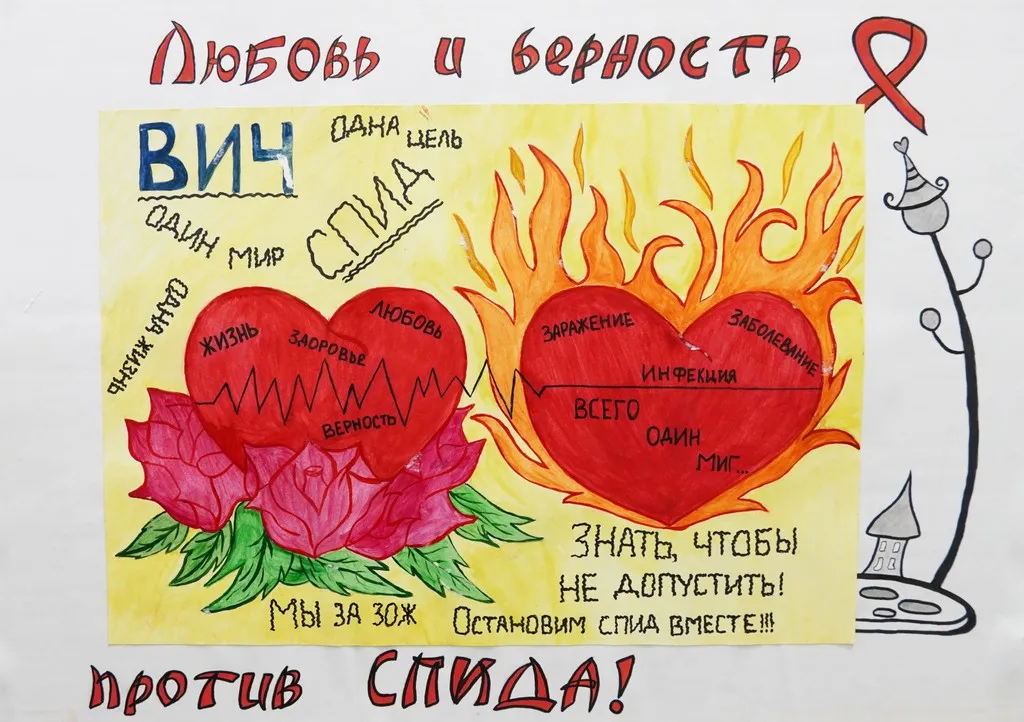 Любовь и верность
ВИЧ
ОДНА
ЦЕЛЬ
ОДИН
МИР
СПИД
ОДНА ЖИЗНЬ
ЖИЗНЬ
ЗДОРОВЬЕ
ЛЮБОВЬ
ВЕРНОСТЬ
ЗАРАЖЕНИЕ
ЗАБОЛЕВАНИЕ
ИНФЕКЦИЯ
ВСЕГО
ОДИН
МИГ...
ЗНАТЬ, ЧТОБЫ
НЕ ДОПУСТИТЬ!
МЫ ЗА ЗОЖ
ОСТАНОВИМ СПИД ВМЕСТЕ!!!
против СПИДА!